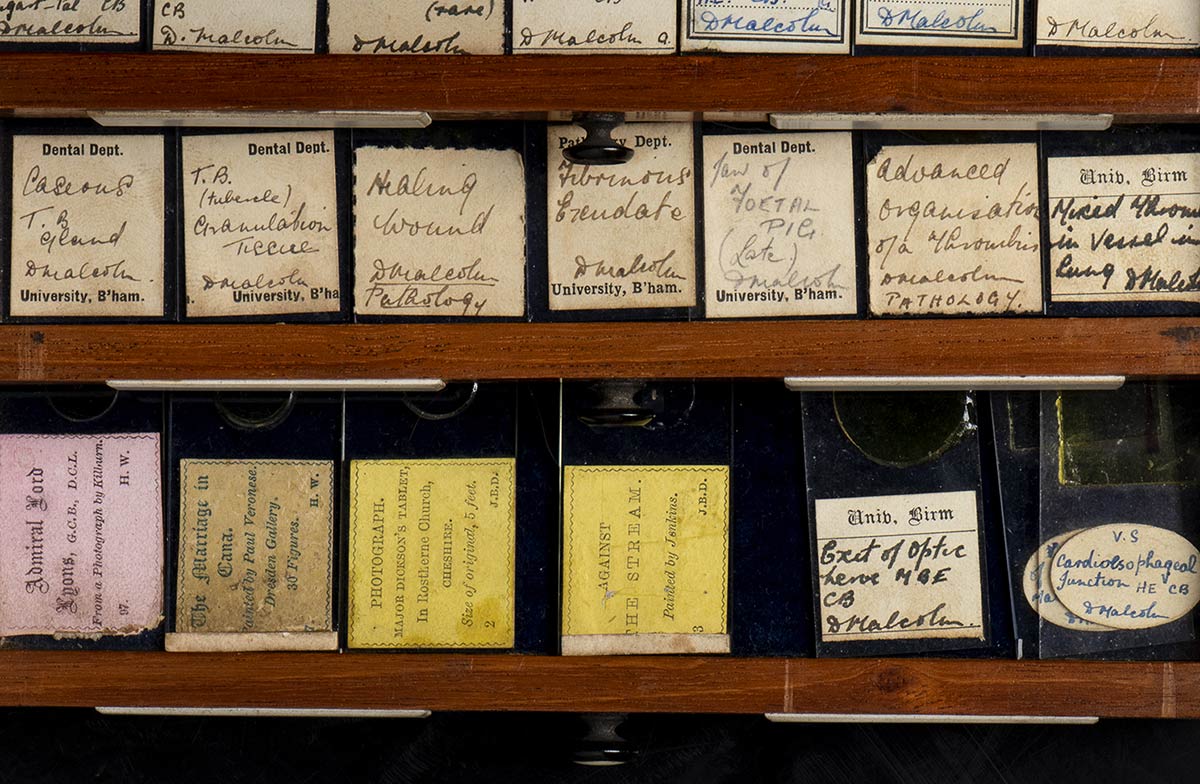 CB
DMalcolm.
CB
D. Malcolm
(rare)
DMalcolm
DMalcolm a.
DMalcolm
DMalcolm
DMalcolm
Dental Dept.
Caseous
T.B
Gland
DMalcolm.
University, B'ham.
Dental Dept.
T.B.
(tubercle)
Granulation
Tissue
DMalcolm
University, B'ha
Healing
Wound
DMalcolm
Pathology
Dept.
Fibrinous
Exudate
DMalcolm
University, B'ham.
Dental Dept.
Jaw of
FOETAL
PIG
(Late)
DMalcolm
University, B'ham.
Advanced
Organisation
of a Thrombus
DMalcolm
PATHOLOGY.
Univ. Birm
Mixed Throm
in Vessel in
Lung DMalcol
Admiral Lord
Lyons, G.C.B., D.C.L.
From a Photograph by Kilburn.
97. H. W.
The Marriage in
Cana.
ainted by Paul Veronese.
Dresden Gallery.
30 Figures.
H. W.
PHOTOGRAPH.
MAJOR DICKSON'S TABLET,
In Rostherne Church,
CHESHIRE.
Size of original, 5 feet.
2 J.B.D.
AGAINST
THE STREAM.
Painted by Jenkins.
3 J.B.D.
Univ. Birm
Exit of Optic
nerve MBE
CB
DMalcolm.
V.S
Cardioesophageal
Junction HE CB
DMalcolm